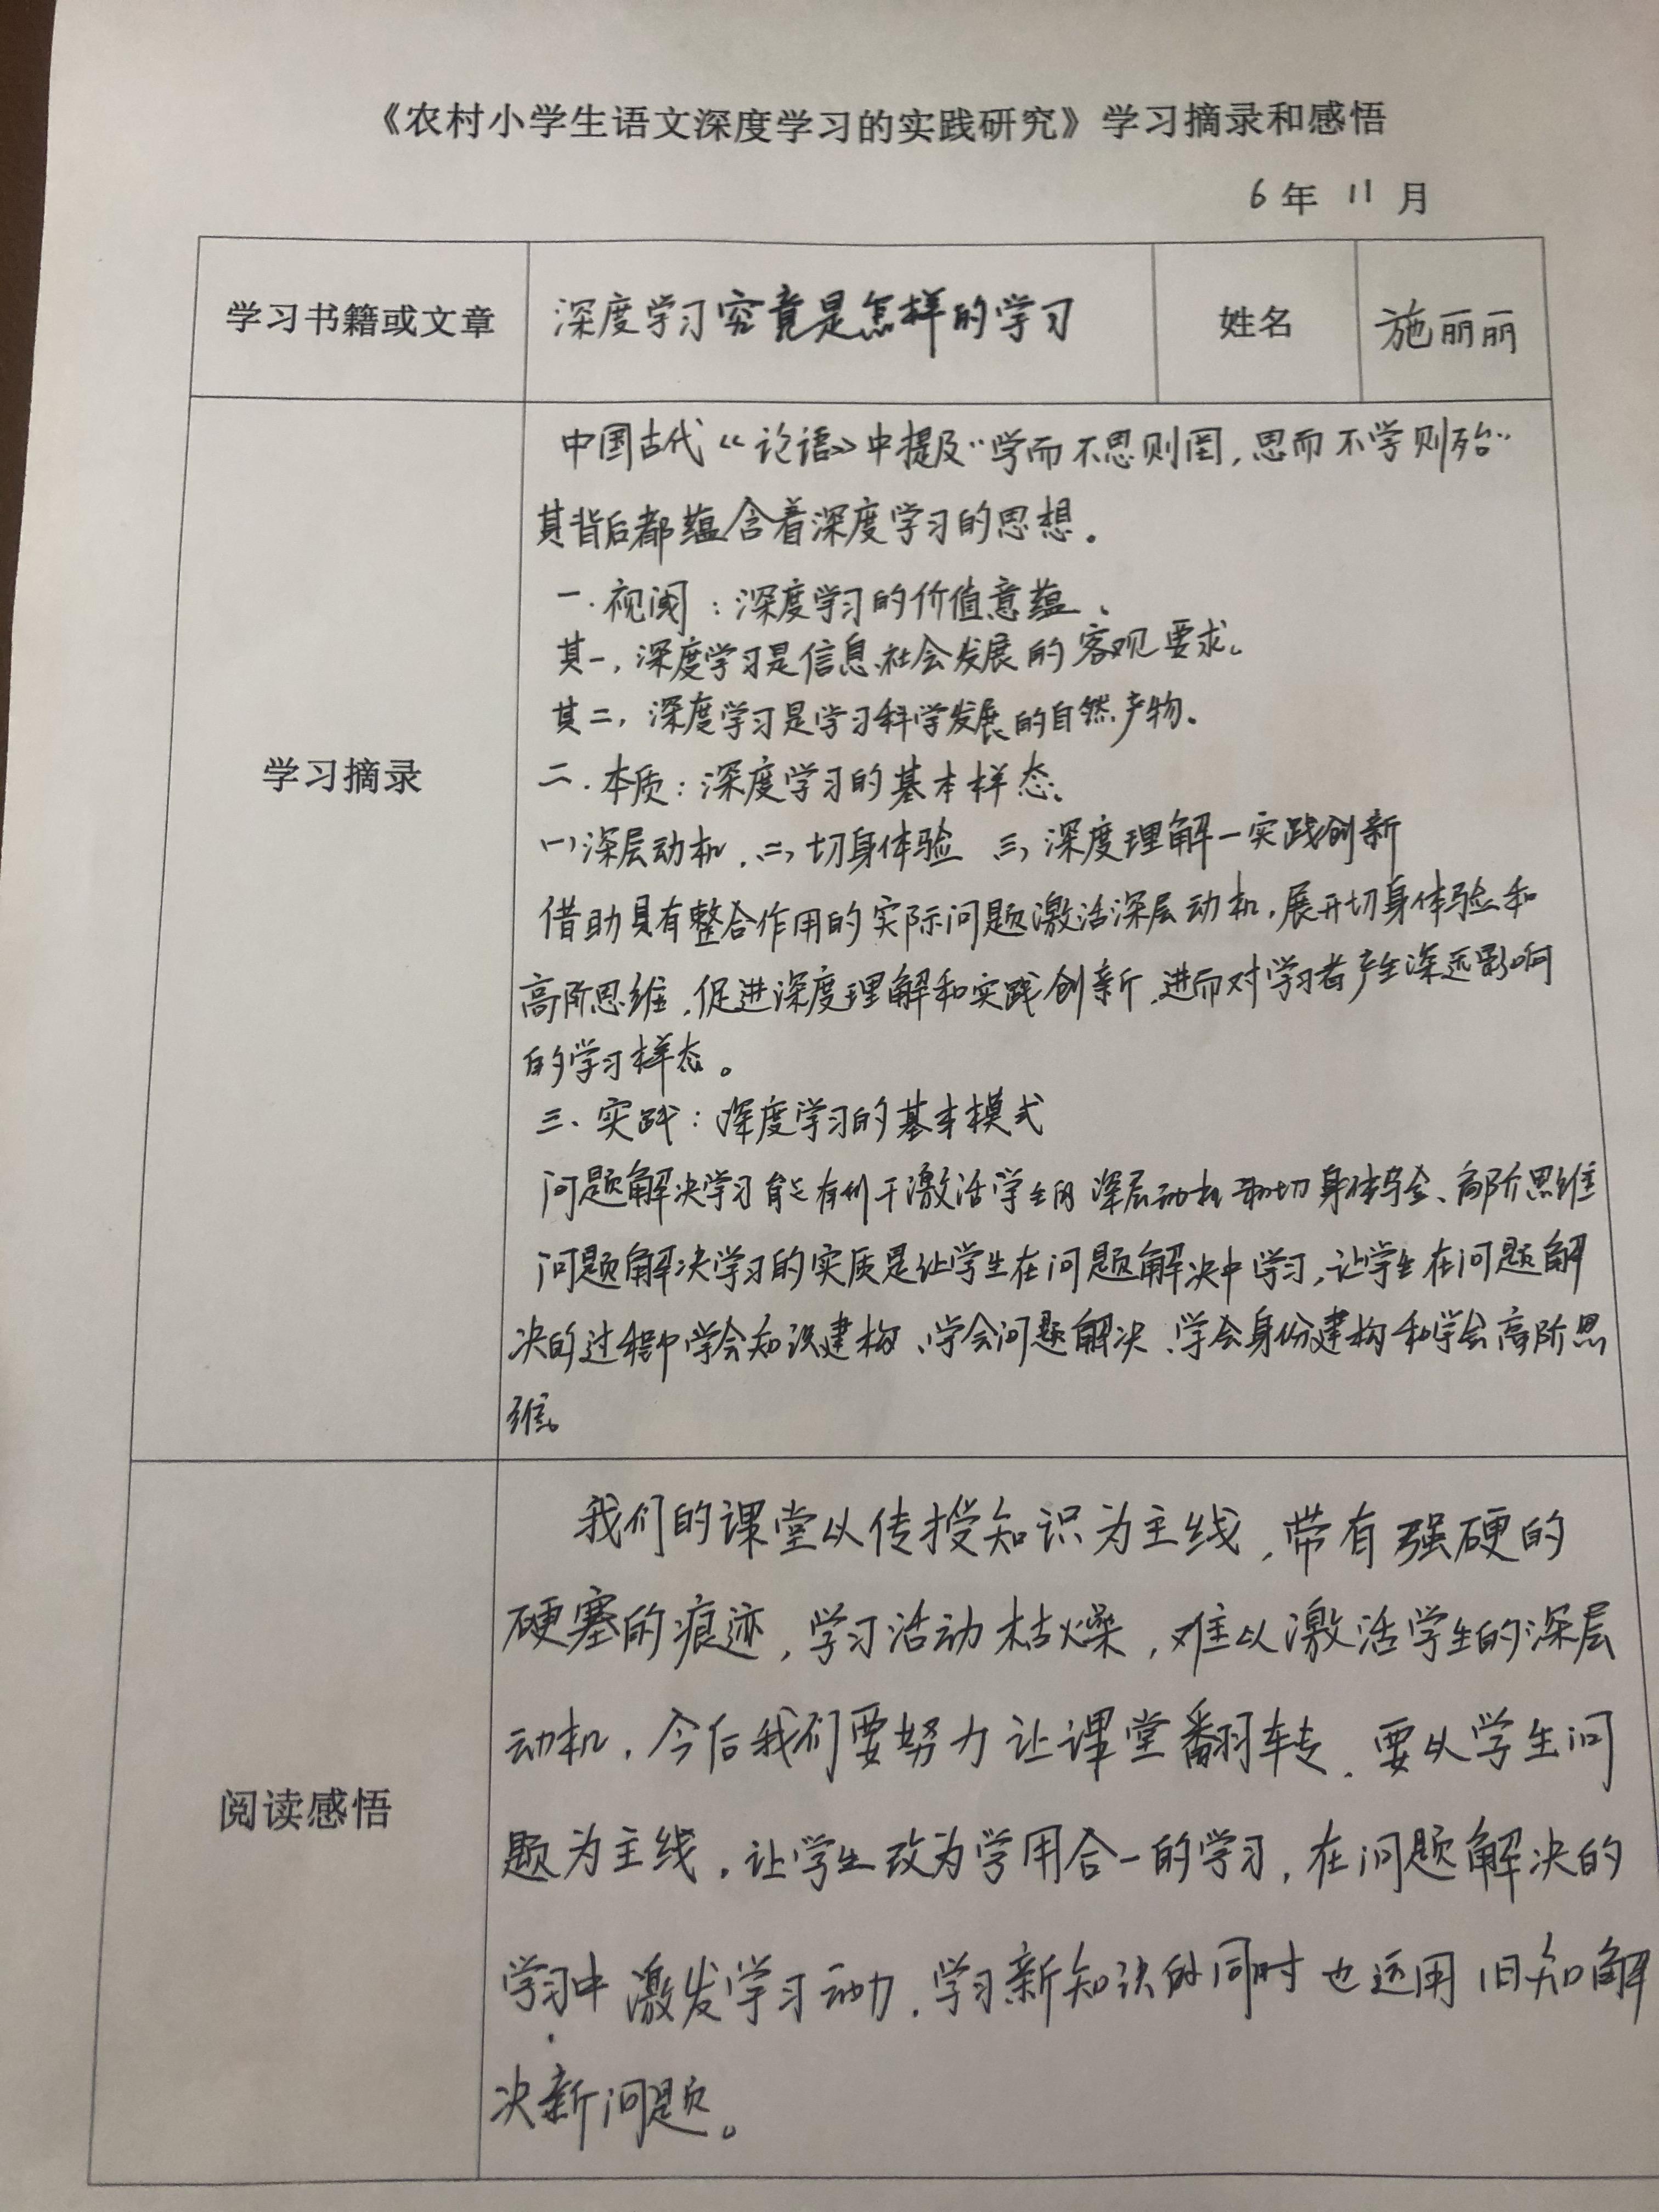 《农村小学生语文深度学习的实践研究》学习摘录和感悟
6 年 11 月
学习书籍或文章 深度学习究竟是怎样的学习 姓名 施丽丽
学习摘录
中国古代《论语》中提及“学而不思则罔,思而不学则殆”
其背后都蕴含着深度学习的思想。
一.视阈:深度学习的价值意蕴、
其一,深度学习是信息社会发展的客观要求。
其二,深度学习是学习科学发展的自然产物。
二.本质:深度学习的基本样态。
一)深层动机,二)切身体验 三)深度理解—实践创新
借助具有整合作用的实际问题激活深层动机,展开切身体验和
高阶思维,促进深度理解和实践创新,进而对学习者产生深远影响
的学习样态。
三、实践:深度学习的基本模式
问题解决学习能有利于激活学生的深层动机和切身体验、高阶思维
问题解决学习的实质是让学生在问题解决中学习,让学生在问题解
决的过程中学会知识建构、学会问题解决、学会身份建构和学会高阶思
维。
阅读感悟
我们的课堂以传授知识为主线,带有强硬的
硬塞的痕迹,学习活动枯燥,难以激活学生的深层
动机,今后我们要努力让课堂翻转,要以学生问
题为主线,让学生改为学用合一的学习,在问题解决的
学习中激发学习动力,学习新知识的同时也运用旧知解
决新问题。